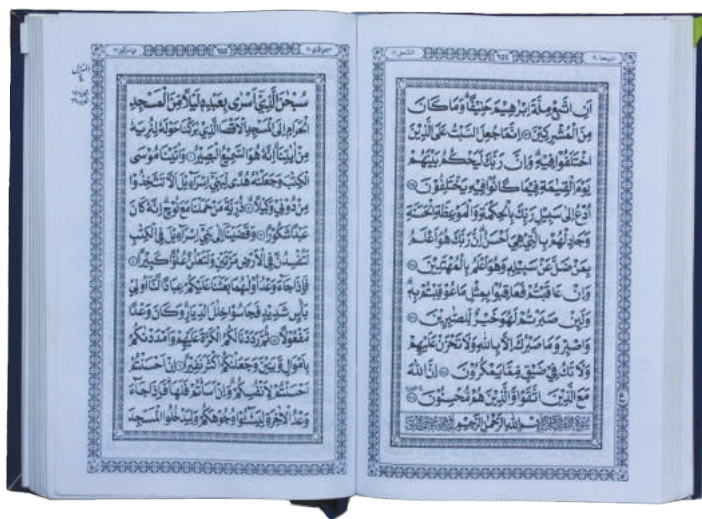 ربما ١٤
٦٥٤
النحل ١٦
اَنِ اتَّبِعْ مِلَّةَ اِبْرٰهِیْمَ حَنِیْفًا ؕ وَمَا كَانَ
مِنَ الْمُشْرِكِیْنَ ۝ اِنَّمَا جُعِلَ السَّبْتُ عَلَی الَّذِیْنَ
اخْتَلَفُوْا فِیْهِ ؕ وَاِنَّ رَبَّكَ لَیَحْكُمُ بَیْنَهُمْ
یَوْمَ الْقِیٰمَةِ فِیْمَا كَانُوْا فِیْهِ یَخْتَلِفُوْنَ ۝
اُدْعُ اِلٰی سَبِیْلِ رَبِّكَ بِالْحِكْمَةِ وَالْمَوْعِظَةِ الْحَسَنَةِ
وَجَادِلْهُمْ بِالَّتِیْ هِیَ اَحْسَنُ ؕ اِنَّ رَبَّكَ هُوَ اَعْلَمُ
بِمَنْ ضَلَّ عَنْ سَبِیْلِهٖ وَهُوَ اَعْلَمُ بِالْمُهْتَدِیْنَ ۝
وَاِنْ عَاقَبْتُمْ فَعَاقِبُوْا بِمِثْلِ مَا عُوْقِبْتُمْ بِهٖ ؕ
وَلَئِنْ صَبَرْتُمْ لَهُوَ خَیْرٌ لِّلصّٰبِرِیْنَ ۝
وَاصْبِرْ وَمَا صَبْرُكَ اِلَّا بِاللّٰهِ وَلَا تَحْزَنْ عَلَیْهِمْ
وَلَا تَكُ فِیْ ضَیْقٍ مِّمَّا یَمْكُرُوْنَ ۝ اِنَّ اللّٰهَ
مَعَ الَّذِیْنَ اتَّقَوْا وَّالَّذِیْنَ هُمْ مُّحْسِنُوْنَ ۝
بِسْمِ اللّٰهِ الرَّحْمٰنِ الرَّحِیْمِ
٦٥٥
سُبْحٰنَ الَّذِیْۤ اَسْرٰی بِعَبْدِهٖ لَیْلًا مِّنَ الْمَسْجِدِ
الْحَرَامِ اِلَی الْمَسْجِدِ الْاَقْصَا الَّذِیْ بٰرَكْنَا حَوْلَهٗ لِنُرِیَهٗ
مِنْ اٰیٰتِنَا ؕ اِنَّهٗ هُوَ السَّمِیْعُ الْبَصِیْرُ ۝ وَاٰتَیْنَا مُوْسَی
الْكِتٰبَ وَجَعَلْنٰهُ هُدًی لِّبَنِیْۤ اِسْرَآءِیْلَ اَلَّا تَتَّخِذُوْا
مِنْ دُوْنِیْ وَكِیْلًا ۝ ذُرِّیَّةَ مَنْ حَمَلْنَا مَعَ نُوْحٍ ؕ اِنَّهٗ كَانَ
عَبْدًا شَكُوْرًا ۝ وَقَضَیْنَاۤ اِلٰی بَنِیْۤ اِسْرَآءِیْلَ فِی الْكِتٰبِ
لَتُفْسِدُنَّ فِی الْاَرْضِ مَرَّتَیْنِ وَلَتَعْلُنَّ عُلُوًّا كَبِیْرًا ۝
فَاِذَا جَآءَ وَعْدُ اُوْلٰىهُمَا بَعَثْنَا عَلَیْكُمْ عِبَادًا لَّنَاۤ اُولِیْ
بَاْسٍ شَدِیْدٍ فَجَاسُوْا خِلٰلَ الدِّیَارِ ؕ وَكَانَ وَعْدًا
مَّفْعُوْلًا ۝ ثُمَّ رَدَدْنَا لَكُمُ الْكَرَّةَ عَلَیْهِمْ وَاَمْدَدْنٰكُمْ
بِاَمْوَالٍ وَّبَنِیْنَ وَجَعَلْنٰكُمْ اَكْثَرَ نَفِیْرًا ۝ اِنْ اَحْسَنْتُمْ
اَحْسَنْتُمْ لِاَنْفُسِكُمْ ۫ وَاِنْ اَسَاْتُمْ فَلَهَا ؕ فَاِذَا جَآءَ
وَعْدُ الْاٰخِرَةِ لِیَسُوْٓءٗا وُجُوْهَكُمْ وَلِیَدْخُلُوا الْمَسْجِدَ